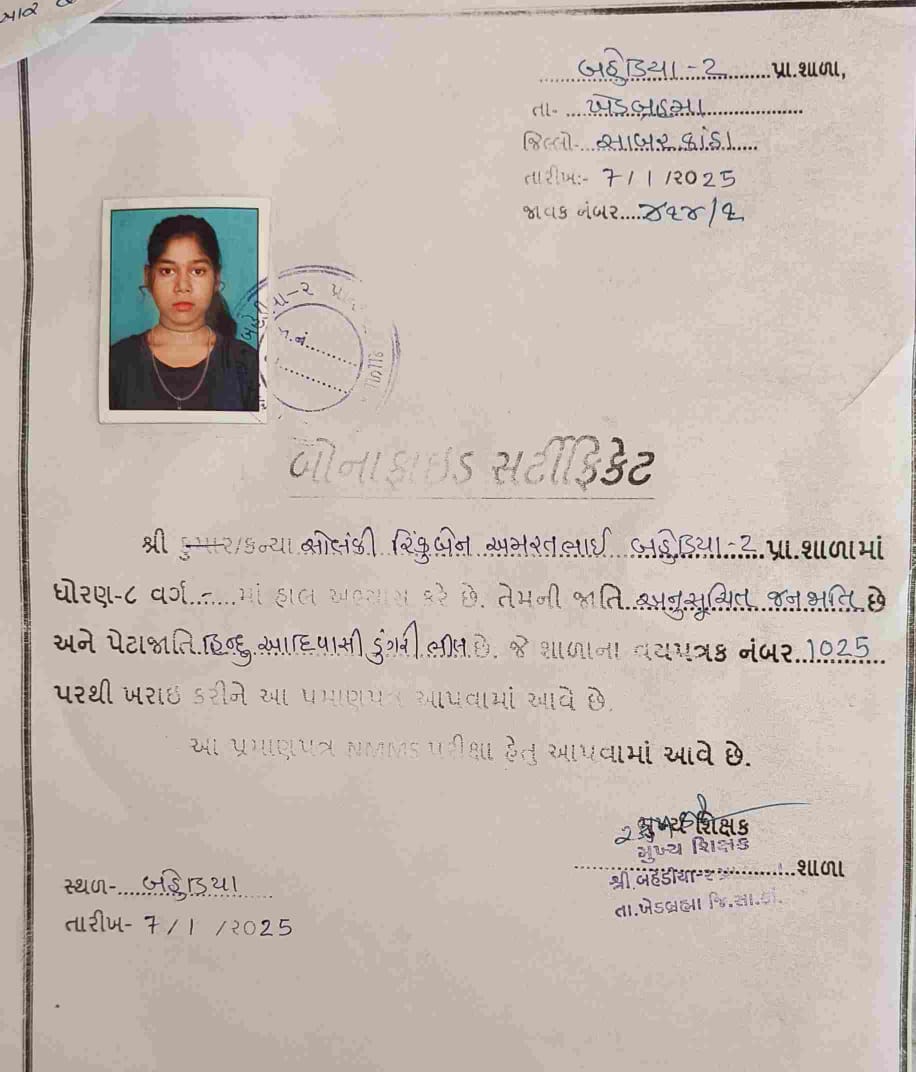 બહેડિયા-2 પ્રા.શાળા,
તા- ખેડબ્રહ્મા
જિલ્લો- સાબરકાંઠા
તારીખ:- 7/1/2025
જાવક નંબર
બોનાફાઇડ સર્ટીફિકેટ
શ્રી કુમાર/કન્યા સોલંકી રિંકુબેન અમરતભાઈ બહેડિયા-2 પ્રા.શાળામાં
ધોરણ-૮ વર્ગ - માં હાલ અભ્યાસ કરે છે. તેમની જાતિ અનુસૂચિત જનજાતિ છે
અને પેટાજાતિ હિન્દુ આદિવાસી ડુંગરી ભીલ છે. જે શાળાના વયપત્રક નંબર 1025
પરથી ખરાઇ કરીને આ પ્રમાણપત્ર આપવામાં આવે છે.
આ પ્રમાણપત્ર NMMS પરીક્ષા હેતુ આપવામાં આવે છે.
મુખ્ય શિક્ષક
મુખ્ય શિક્ષક
શાળા
શ્રી બહેડીયા-૨
તા.ખેડબ્રહ્મા જિ.સા.કાં.
સ્થળ- બહેડિયા
તારીખ- 7/1/2025